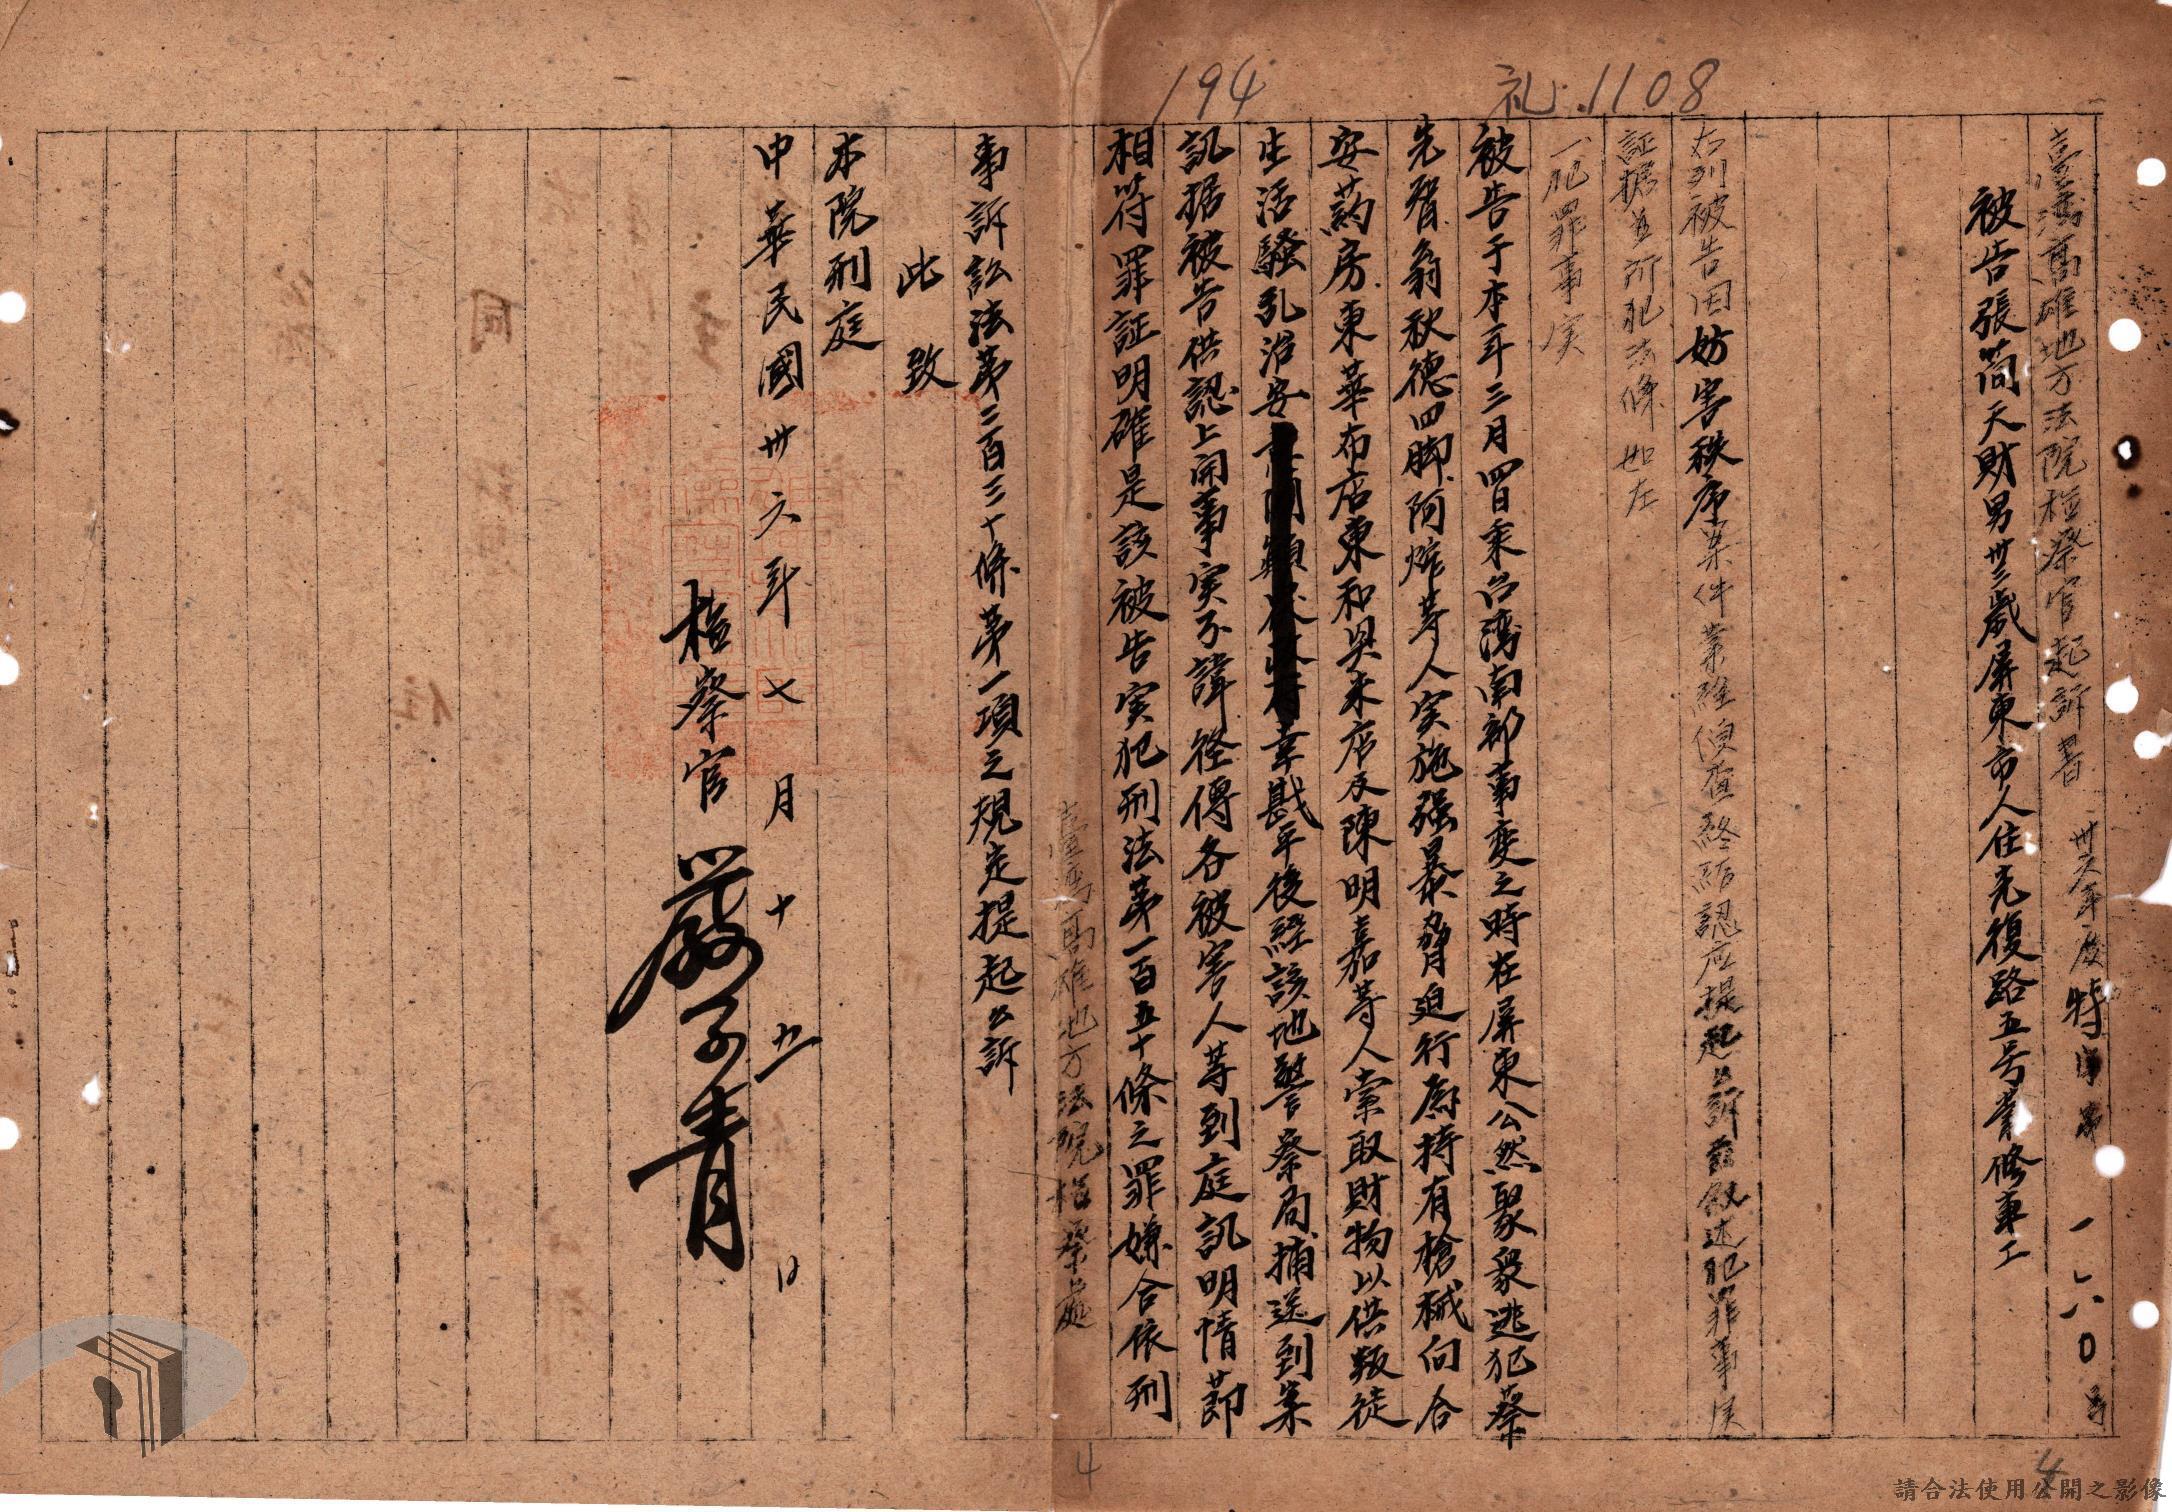 194
礼.1108
臺灣高雄地方法院檢察官起訴書 卅六年度特字第一六〇号
被告張簡天財男卅三歲屏東市人住光復路五号業修車工
右列被告因妨害秩序案件業經偵查終結認应提起公訴茲叙述犯罪事実
証据並所犯法條如左
一犯罪事実
被告于本年三月四日乘台湾南部事变之時在屏東公然聚衆逃犯蔡
先智翁秋德四脚阿炸等人実施强暴脅迫行為持有槍械向合
安葯房東華布店東和興米店及陳明嘉等人索取財物以供叛徒
生活騷乱治安幸戡平後経該地警察局捕送到案
訊据被告供認上開事実不諱経傳各被害人等到庭訊明情節
相符罪証明確是該被告実犯刑法第一百五十條之罪嫌合依刑
臺灣高雄地方法院檢察處
事訴訟法第二百三十條第一項之規定提起公訴
此致
本院刑庭
中華民國卅六年七月十九日
檢察官 嚴子青
4
4
請合法使用公開之影像